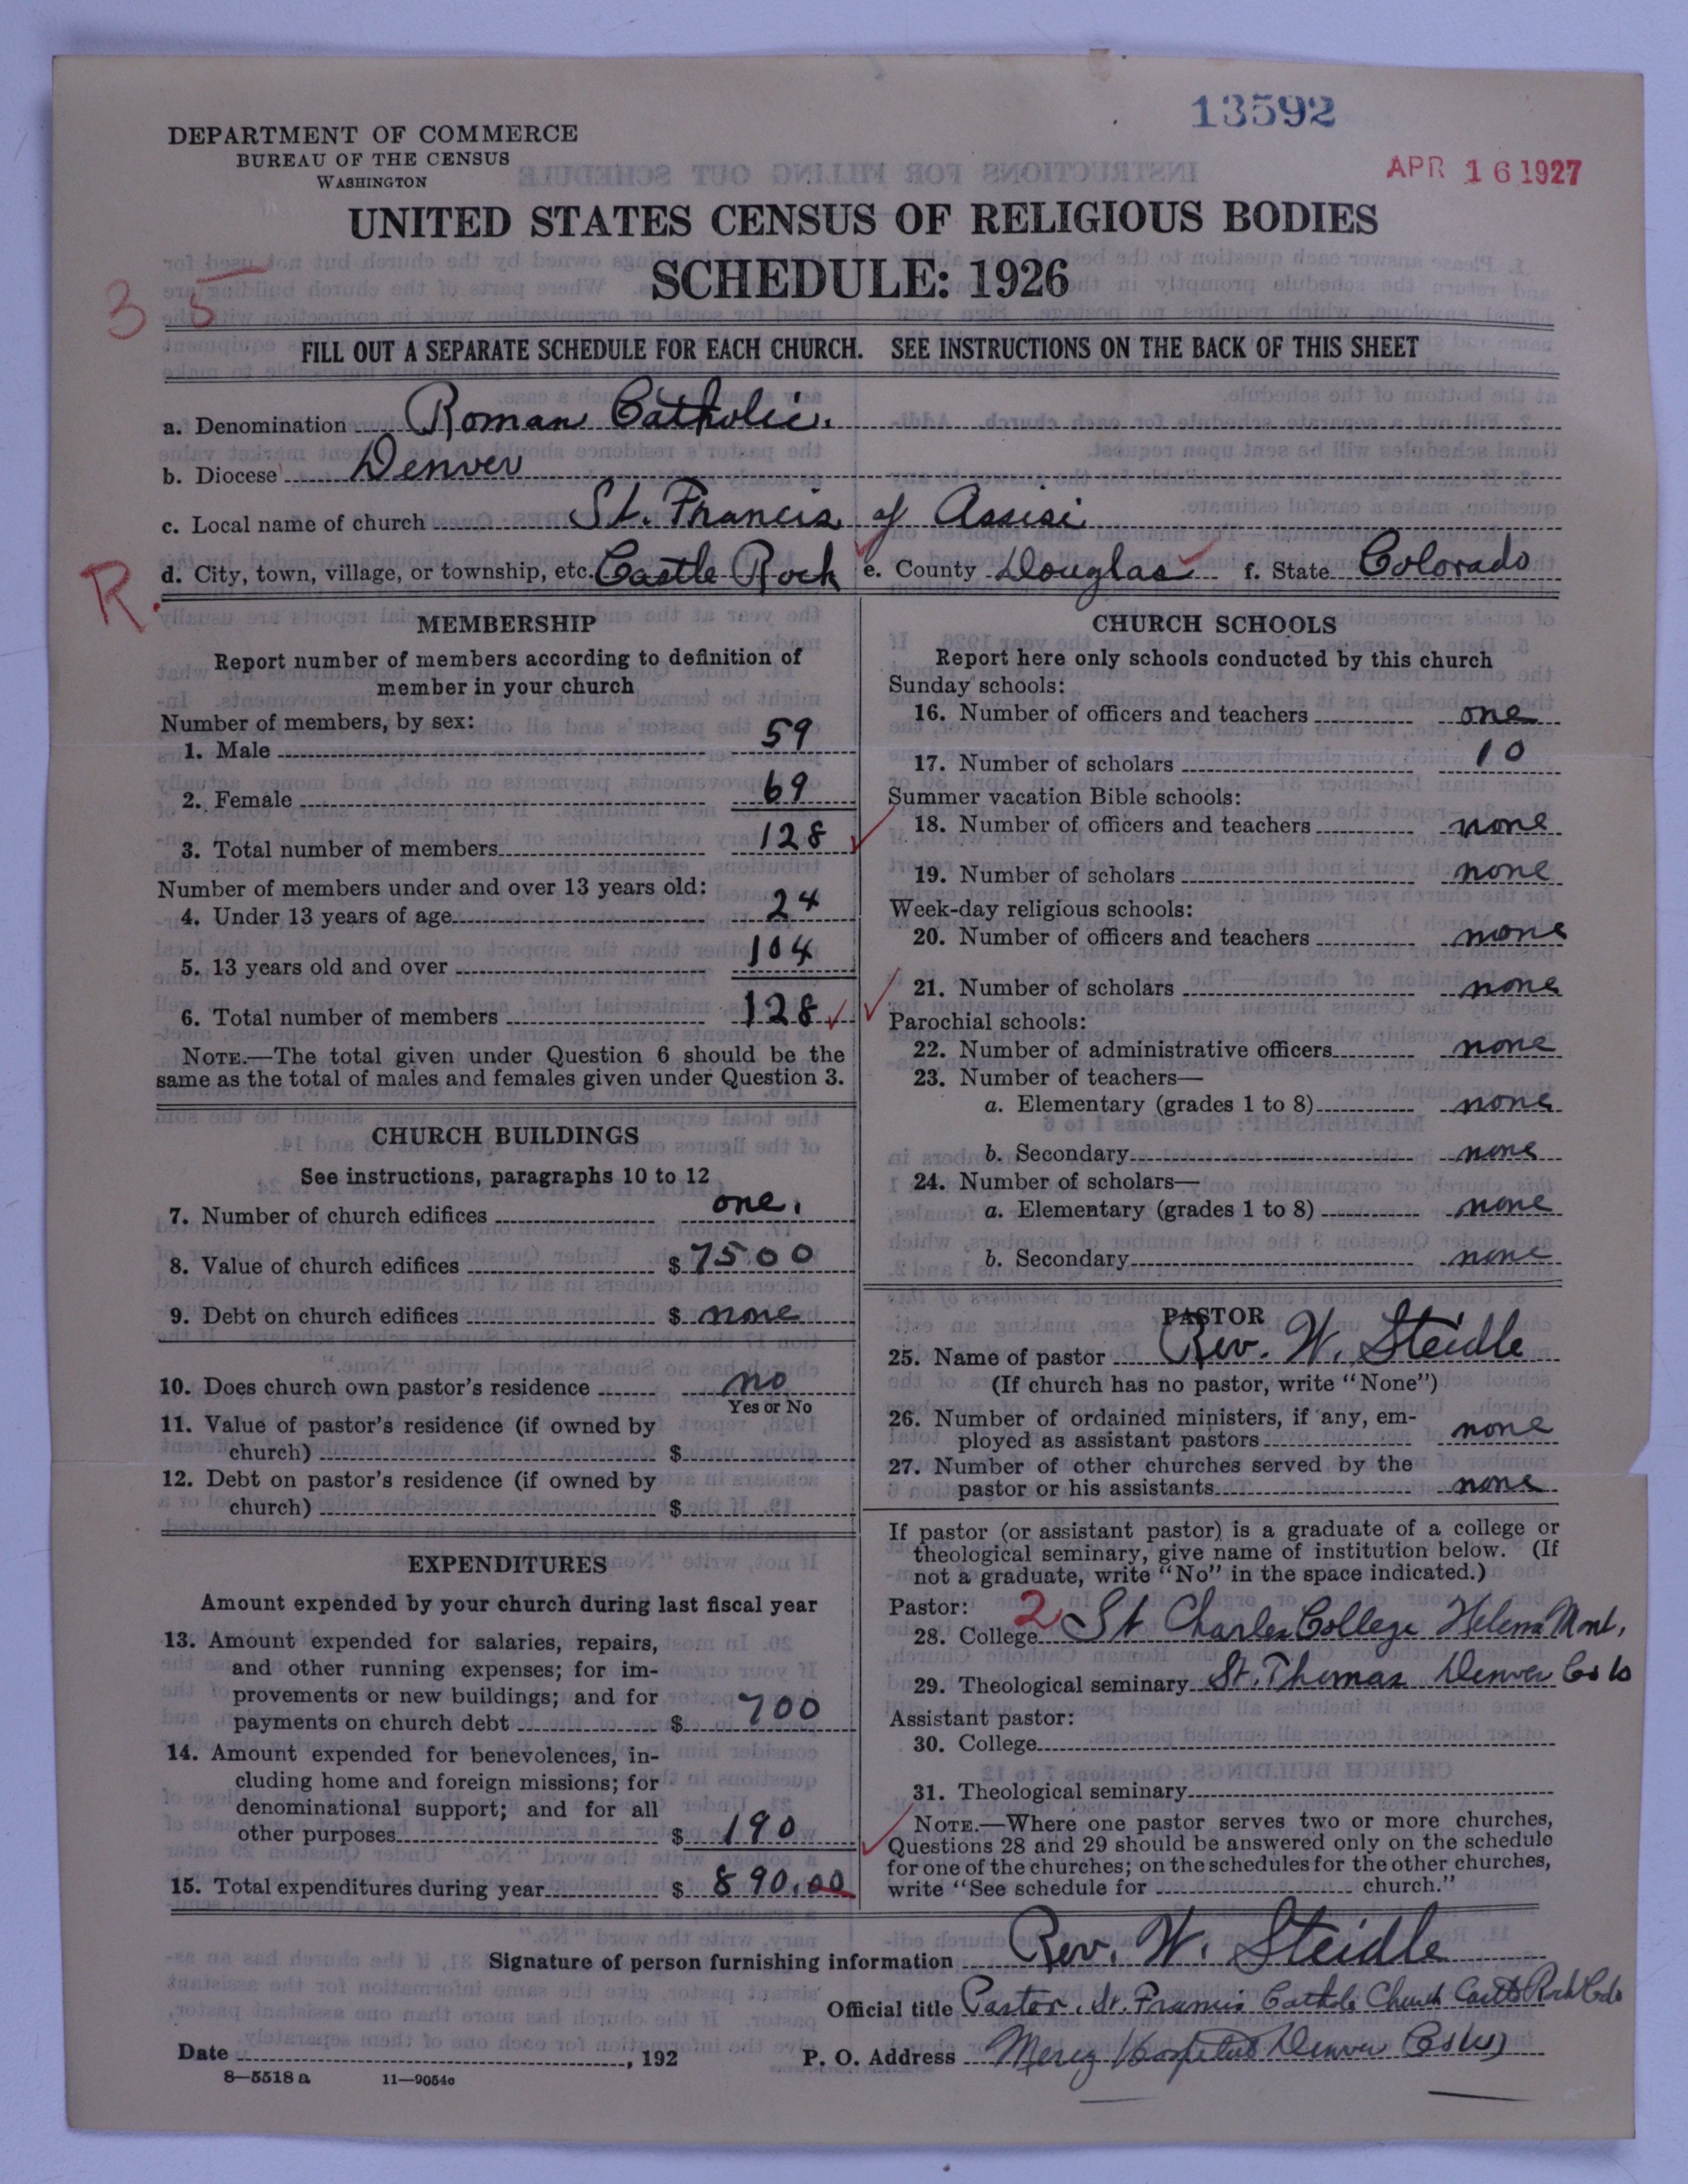 13592
APR 16 1927
DEPARTMENT OF COMMERCE
BUREAU OF THE CENSUS
WASHINGTON
UNITED STATES CENSUS OF RELIGIOUS BODIES
SCHEDULE: 1926
35
FILL OUT A SEPARATE SCHEDULE FOR EACH CHURCH. SEE INSTRUCTIONS ON THE BACK OF THIS SHEET
a. Denomination Roman Catholic.
b. Diocese Denver
c. Local name of church St. Francis of Assisi
R. d. City, town, village, or township, etc. Castle Rock e. County Douglas f. State Colorado
MEMBERSHIP
Report number of members according to definition of
member in your church
Number of members, by sex:
1. Male 59
2. Female 69
3. Total number of members 128
Number of members under and over 13 years old:
4. Under 13 years of age 24
5. 13 years old and over 104
6. Total number of members 128
NOTE.—The total given under Question 6 should be the
same as the total of males and females given under Question 3.
CHURCH BUILDINGS
See instructions, paragraphs 10 to 12
7. Number of church edifices one.
8. Value of church edifices $ 7500
9. Debt on church edifices $ none
10. Does church own pastor's residence no
Yes or No
11. Value of pastor's residence (if owned by
church) $
12. Debt on pastor's residence (if owned by
church) $
EXPENDITURES
Amount expended by your church during last fiscal year
13. Amount expended for salaries, repairs,
and other running expenses; for im-
provements or new buildings; and for
payments on church debt $ 700
14. Amount expended for benevolences, in-
cluding home and foreign missions; for
denominational support; and for all
other purposes $ 190
15. Total expenditures during year $ 890.00
CHURCH SCHOOLS
Report here only schools conducted by this church
Sunday schools:
16. Number of officers and teachers one
17. Number of scholars 10
Summer vacation Bible schools:
18. Number of officers and teachers none
19. Number of scholars none
Week-day religious schools:
20. Number of officers and teachers none
21. Number of scholars none
Parochial schools:
22. Number of administrative officers none
23. Number of teachers—
a. Elementary (grades 1 to 8) none
b. Secondary none
24. Number of scholars—
a. Elementary (grades 1 to 8) none
b. Secondary none
PASTOR
25. Name of pastor Rev. W. Steidle
(If church has no pastor, write "None")
26. Number of ordained ministers, if any, em-
ployed as assistant pastors none
27. Number of other churches served by the
pastor or his assistants none
If pastor (or assistant pastor) is a graduate of a college or
theological seminary, give name of institution below. (If
not a graduate, write "No" in the space indicated.)
Pastor: 2
28. College St Charles College Helena Mont.
29. Theological seminary St. Thomas Denver Colo
Assistant pastor:
30. College
31. Theological seminary
NOTE.—Where one pastor serves two or more churches,
Questions 28 and 29 should be answered only on the schedule
for one of the churches; on the schedules for the other churches,
write "See schedule for church."
Signature of person furnishing information Rev. W. Steidle
Official title Pastor. St. Francis Catholic Church Castle Rock Colo
Date , 192 P. O. Address Mercy Hospital Denver Colo
8—5518 a 11—9054c